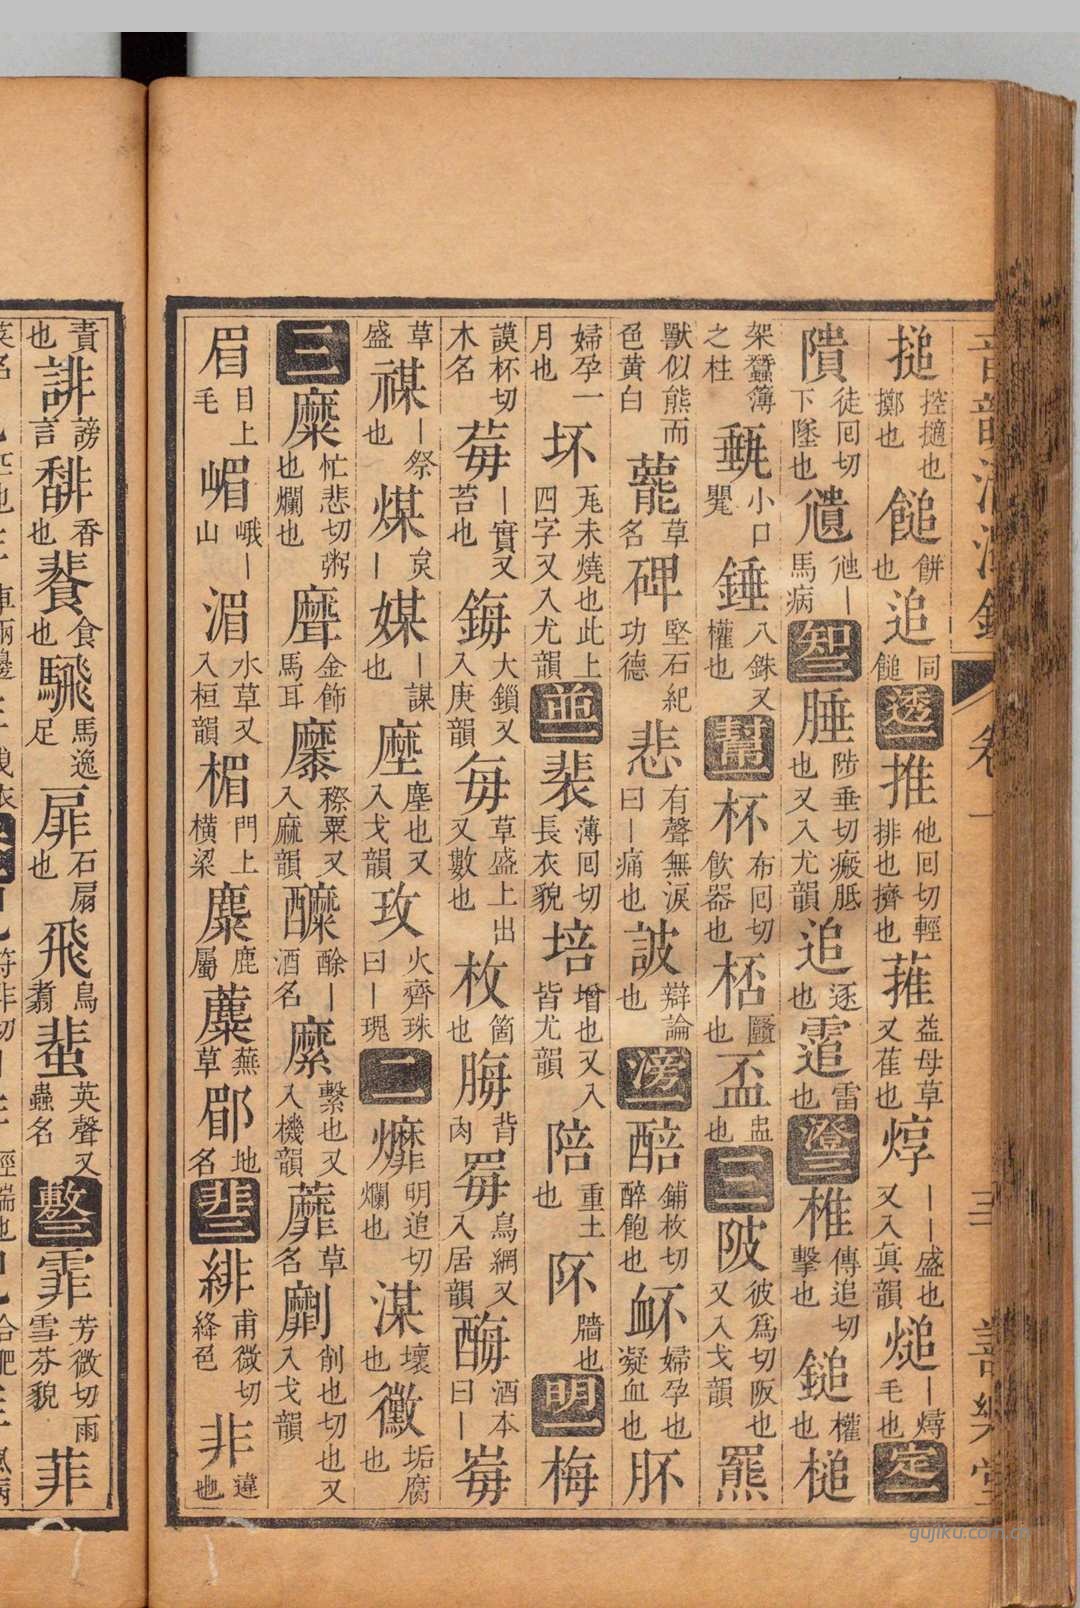 搥控擿也擲也䭔餅也追同䭔透一推他囘切輕排也擠也蓷益母草又萑也焞——盛也又入真韻㷟—㷟毛也定一
隤徒囘切下墜也㿉虺—馬病知二腄陟垂切瘢胝也又入尤韻追逐也䨨雷也澄二椎傳追切擊也鎚權也槌
架蠶簿之柱㼂小口甖錘八銖又權也幫一杯布囘切飲器也桮匾也盃盅也三陂彼爲切阪也又入戈韻羆
獸似熊而色黃白蘢草名碑堅石紀功德悲有聲無淚曰—痛也詖辯論也滂一醅鋪枚切醉飽也衃婦孕也凝血也肧
婦孕一月也坏瓦未燒也此上四字又入尤韻並一裴薄囘切長衣貌培增也又入皆尤韻陪重土也阫牆也明一梅
謨杯切木名莓—實又苔也鋂大鎖又入庚韻每草盛上出又數也枚箇也脢背肉罞鳥網又入居韻酶酒本曰—莓
草盛禖—祭也煤炱—媒—謀也塺塵也又入戈韻玫火齊珠曰—瑰二爢明追切爛也湈壞也黴垢腐也
三糜忙悲切粥也爛也䃺金飾馬耳穈穄粟又入麻韻醾酴—酒名縻繫也又入機韻蘼草名劘削也切也又入戈韻
眉目上毛嵋峨—山湄水草又入桓韻楣門上橫梁麋鹿屬蘪蕪草郿地名非二緋甫微切絳色非違也
責也誹謗言也馡香也餥食也騛馬逸足扉石扇也飛鳥翥蜚英聲又蟲名敷二霏芳微切雨雪芬貌菲
音韻清濁鑑 卷一 三 善樂堂
gujiku.com.cn